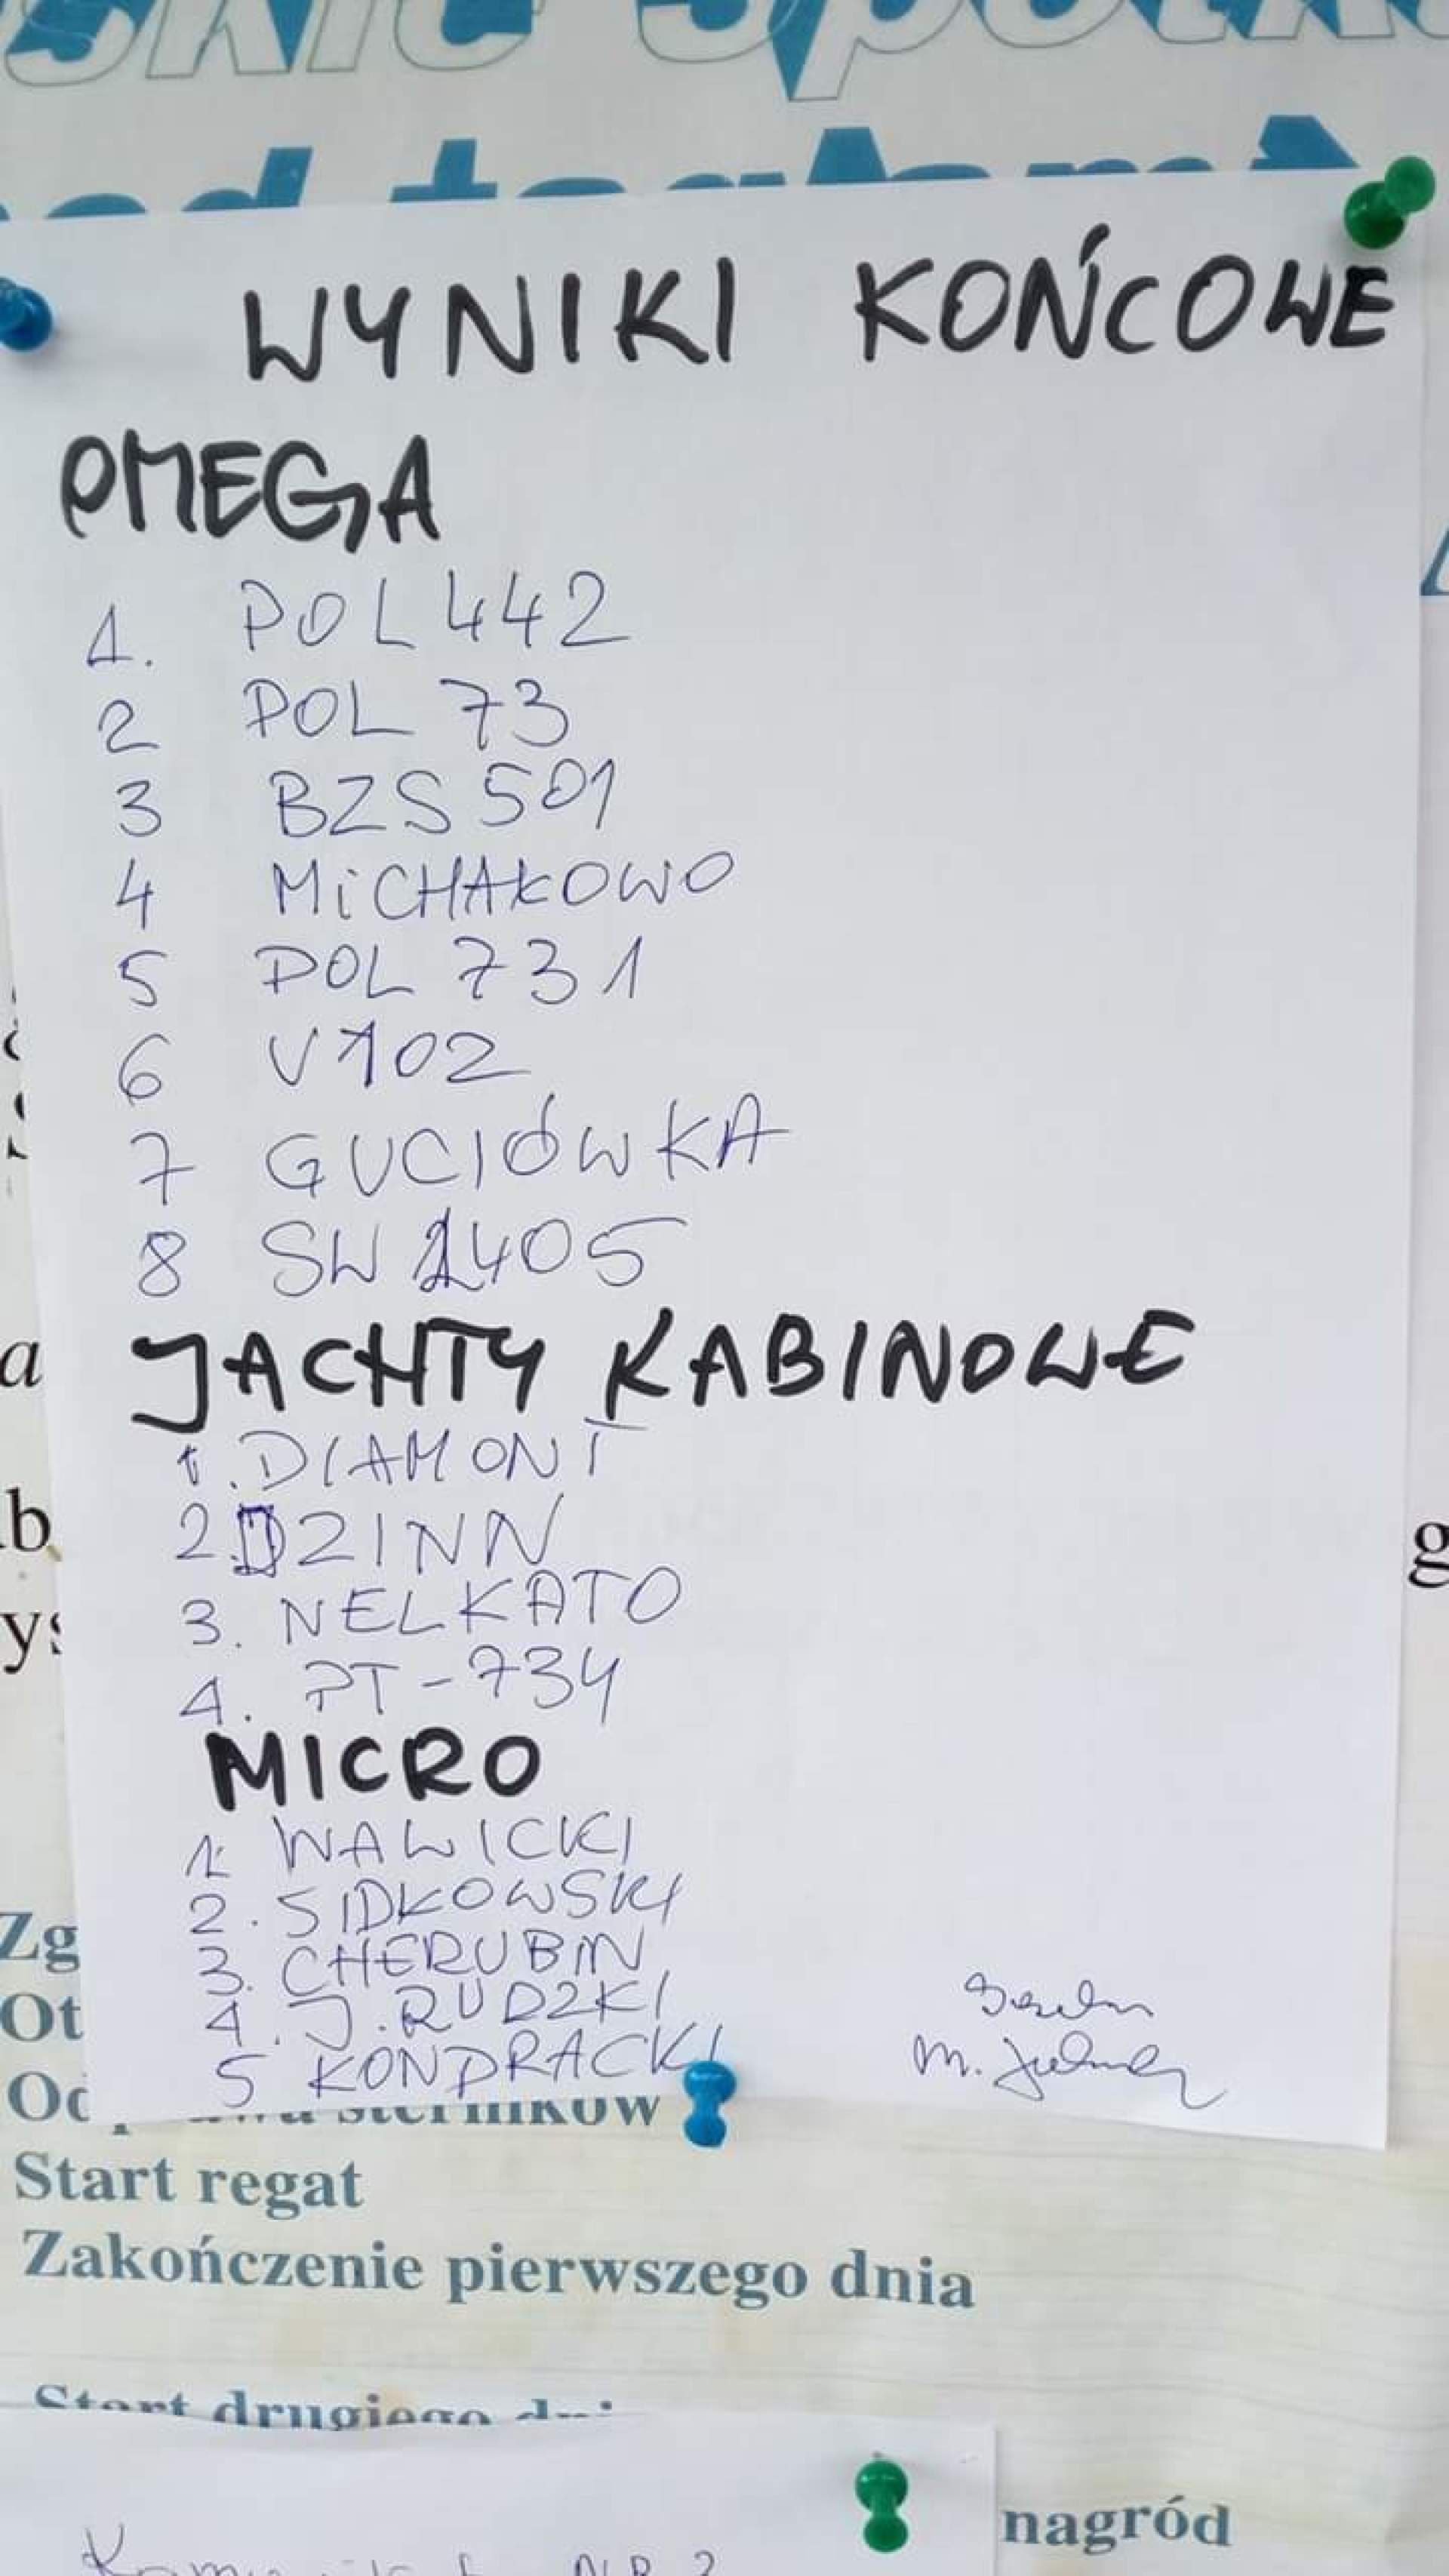 WYNIKI KOŃCOWE
OMEGA
1. POL 442
2 POL 73
3 BZS 501
4 MiCHAŁOWO
5 POL 731
6 V102
7 GUCIÓWKA
8 SW 1405
JACHTY KABINOWE
1. DIAMONT
2. DZINN
3. NELKATO
4. PT-734
MICRO
1. WAWICKI
2. SIDKOWSKI
3. CHERUBIN
4. J. RUDZKI
5 KONDRACKI
M.
Zg
Ot
Od
Start regat
Zakończenie pierwszego dnia
Start drugiego
nagród